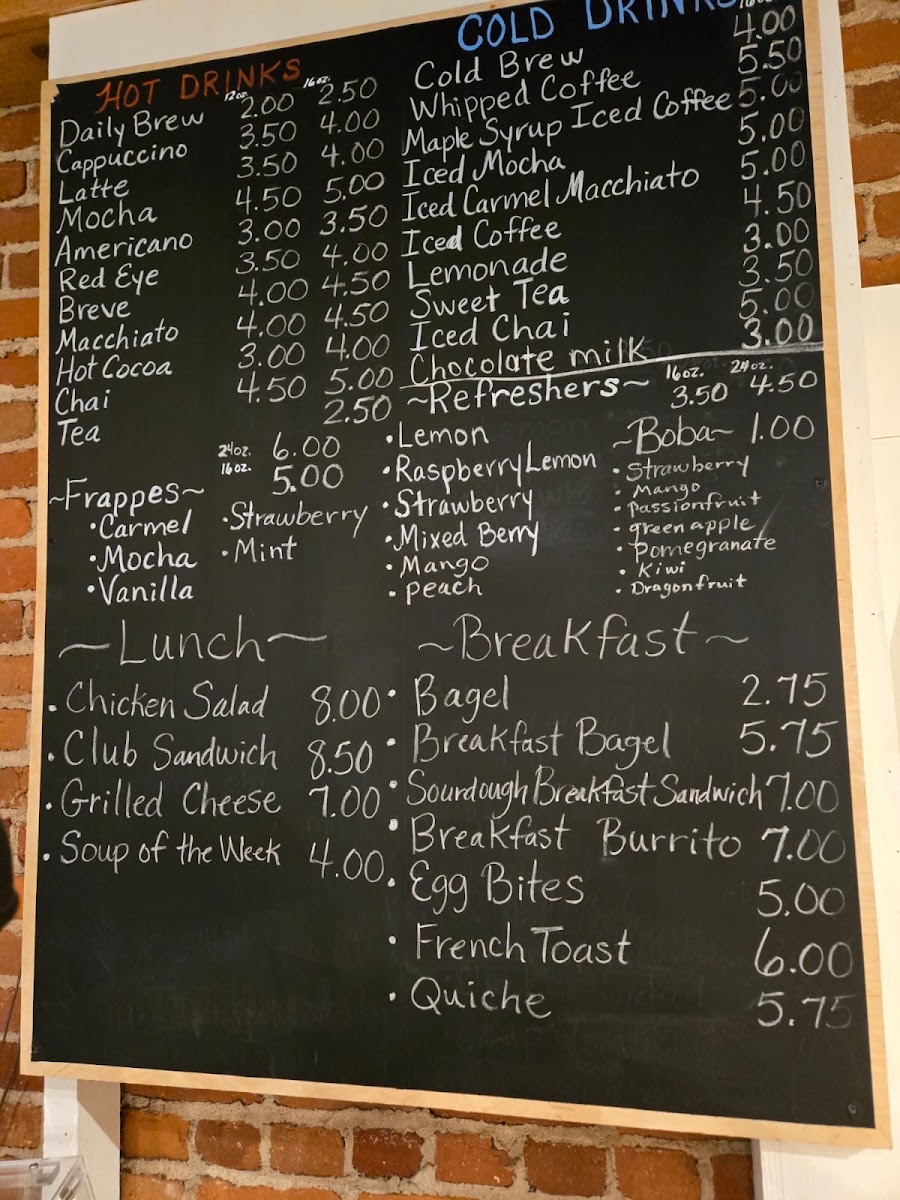 HOT DRINKS
12oz. 16oz.
Daily Brew 2.00 2.50
Cappuccino 3.50 4.00
Latte 3.50 4.00
Mocha 4.50 5.00
Americano 3.00 3.50
Red Eye 3.50 4.00
Breve 4.00 4.50
Macchiato 4.00 4.50
Hot Cocoa 3.00 4.00
Chai 4.50 5.00
Tea 2.50
~Frappes~
24oz. 6.00
16oz. 5.00
• Carmel
• Mocha
• Vanilla
• Strawberry
• Mint
COLD DRINKS
16oz.
Cold Brew 4.00
Whipped Coffee 5.50
Maple Syrup Iced Coffee 5.00
Iced Mocha 5.00
Iced Carmel Macchiato 5.00
Iced Coffee 4.50
Lemonade 3.00
Sweet Tea 3.50
Iced Chai 5.00
Chocolate milk 3.00
~Refreshers~
16oz. 24oz.
3.50 4.50
• Lemon
• Raspberry Lemon
• Strawberry
• Mixed Berry
• Mango
• peach
~Boba~ 1.00
• Strawberry
• Mango
• passionfruit
• green apple
• pomegranate
• Kiwi
• Dragonfruit
~Lunch~
• Chicken Salad 8.00
• Club Sandwich 8.50
• Grilled Cheese 7.00
• Soup of the Week 4.00
~Breakfast~
• Bagel 2.75
• Breakfast Bagel 5.75
• Sourdough Breakfast Sandwich 7.00
• Breakfast Burrito 7.00
• Egg Bites 5.00
• French Toast 6.00
• Quiche 5.75